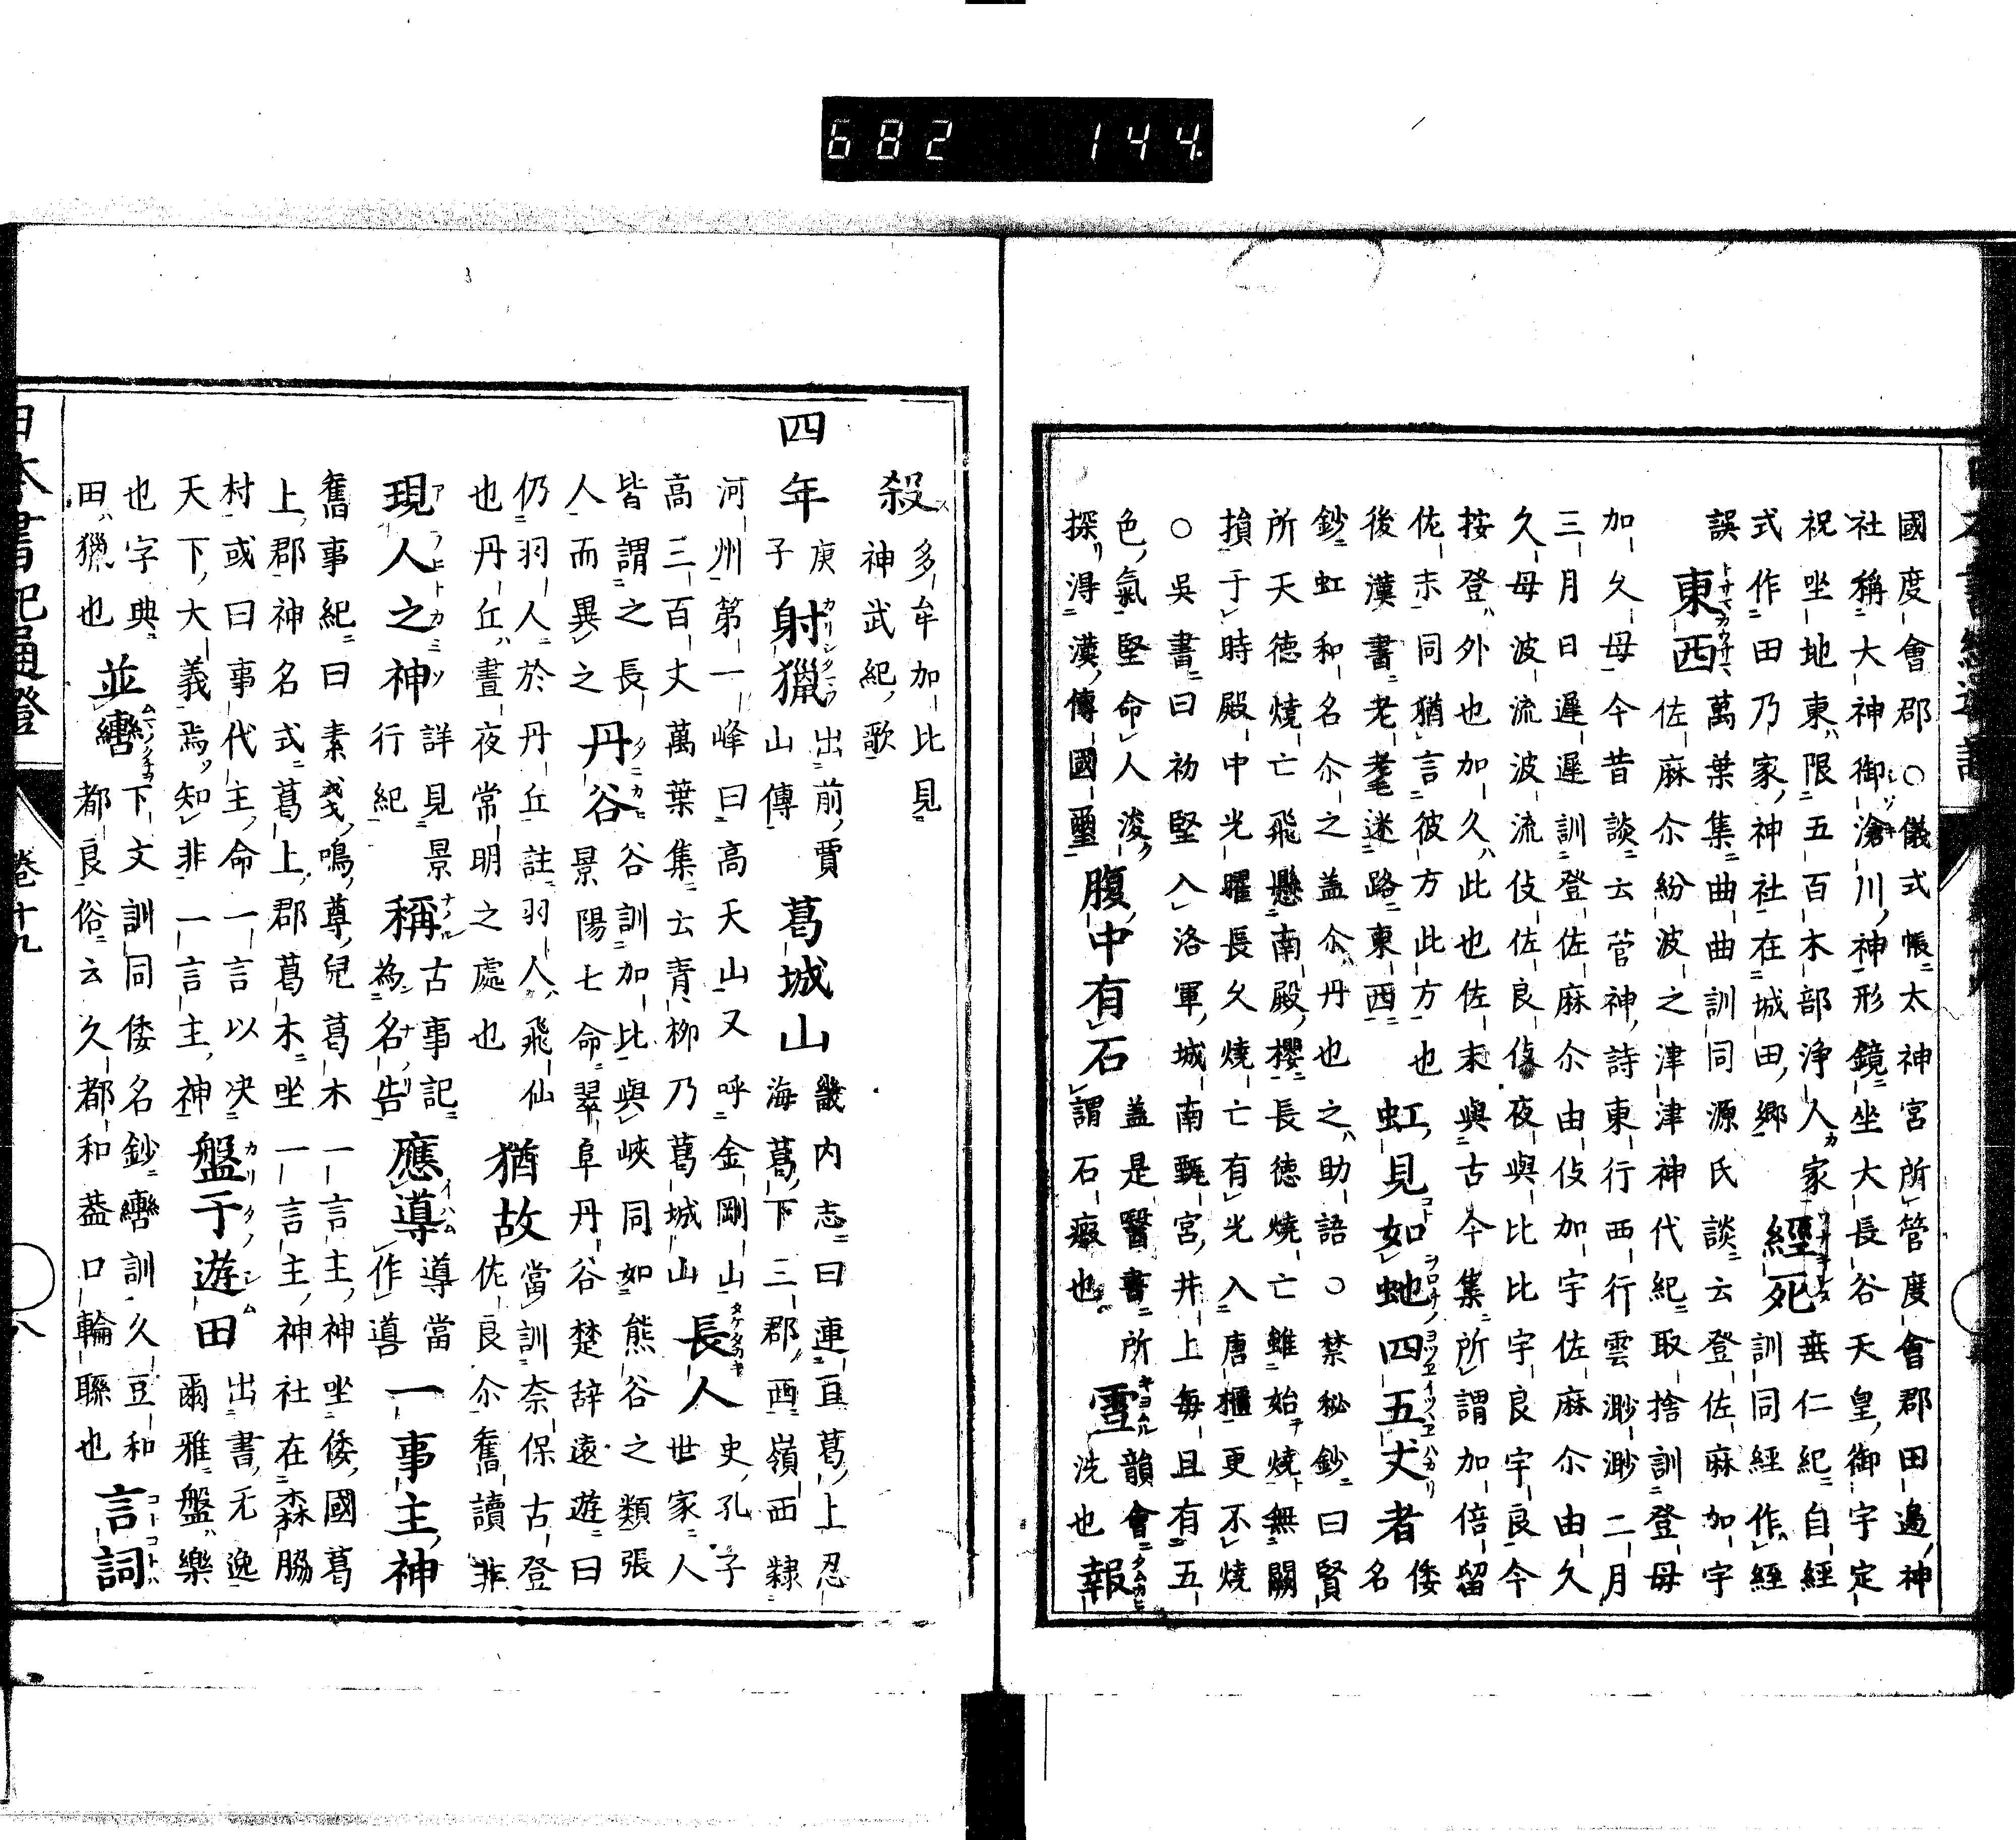 682 144
國度會郡○儀式帳太神宮所管度會郡田邊神
社稱大神御滄川神形鏡坐大長谷天皇御宇定
祝坐地東限五百木部浄人家 經死 垂仁紀自經
式作田乃家神社在城田郷 訓同經作經
誤 東西 萬葉集曲曲訓同源氏談云登佐麻加宇
佐麻尒紛波之津津神代紀取捨訓登母
加久母今昔談云菅神詩東行西行雲渺渺二月
三月日遲遲訓登佐麻尒由伎加宇佐麻尒由久
久母波流波流伎佐良伎夜與比比宇良宇良今
按登外也加久此也佐末與古今集所謂加倍留
佐末同猶言彼方此方也 虹見如虵四五丈者 倭名
後漢書老耄迷路東西
鈔虹和名尒之盖尒丹也之助語○禁秘鈔曰賢
所天徳燒亡飛懸南殿櫻長徳燒亡雖始燒無關
損于時殿中光曜長久燒亡有光入唐櫃更不燒
○吳書曰初堅入洛軍城南甄宮井上每旦有五
色氣堅命人浚
探得漢傳國璽 腹中有石 盖是醫書所
謂石瘕也 雪 韻會
洗也 報
殺 多牟加比見
神武紀歌
四年 庚子 射獵 出前賈山傳 葛城山 畿内志曰連亘葛上忍
海葛下三郡酉嶺西隸
河州第一峰曰高天山又呼金剛山 長人 史孔子
世家人
高三百丈萬葉集云青柳乃葛城山
皆謂之長 丹谷 谷訓加比與峽同如熊谷之類張
人而異之 景陽七命翠阜丹谷楚辞遠遊曰
仍羽人於丹丘註羽人飛仙
也丹丘晝夜常明之處也 猶故 當訓奈保古登
佐良尒舊讀非
現人之神 詳見景行紀 稱 古事記為名告 應導 導當作䆃 一事主神
舊事紀曰素戔鳴尊兒葛木一言主神坐倭國葛
上郡神名式葛上郡葛木坐一言主神社在森脇
村或曰事代主命一言以决
天下大義焉知非一言主神 盤于遊田 出書无逸
爾雅盤樂
也字典
田獵也 並轡 下文訓同倭名鈔轡訓久豆和
都良俗云久都和葢口輪聯也 言詞
日本書紀通證 卷十九 八